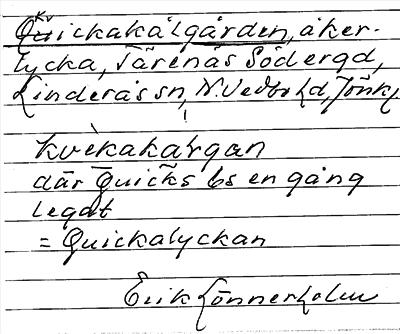 Quickakålgården, åker-
lycka, Tärenäs Södergd,
Linderås sn, N. Vedbo hd, Jönk.
kvèkakàrgan
där Quicks bs en gång
legat
= Quickalyckan
Erik Lönnerholm